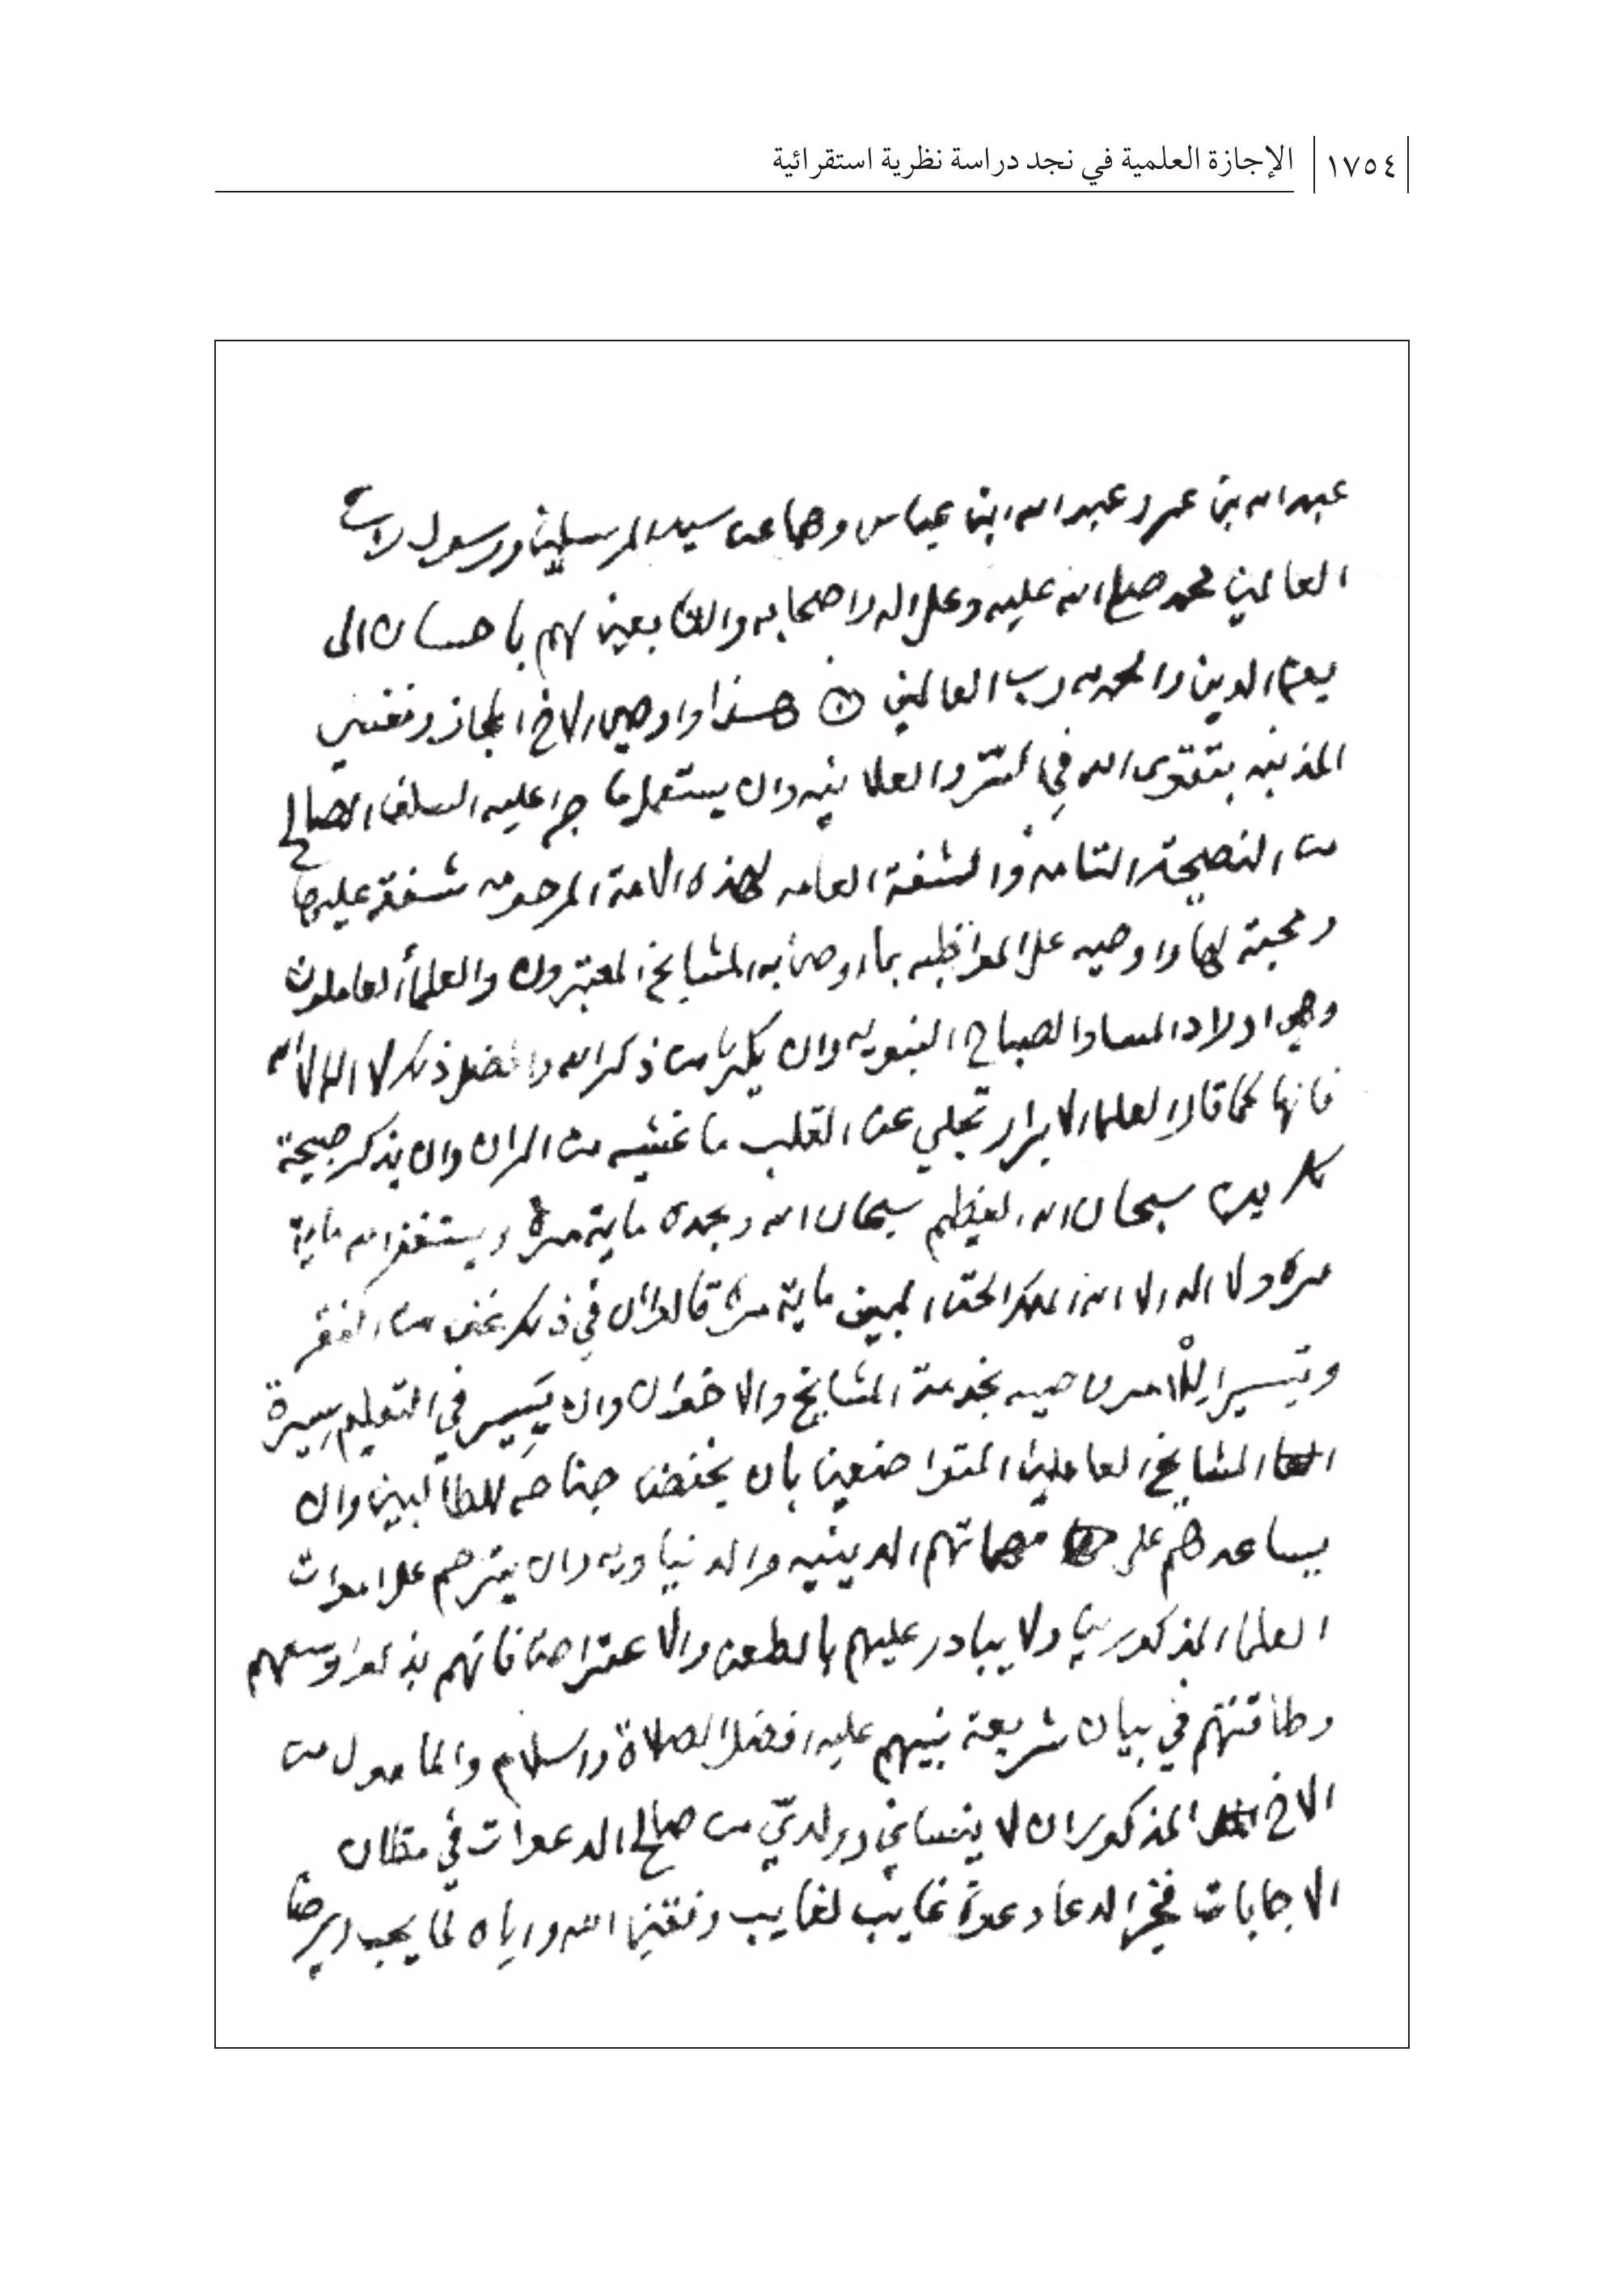 ١٧٥٤ الإجازة العلمية في نجد دراسة نظرية استقرائية
عبد الله بن عمر وعبد الله ابن عباس وهما عن سيد المرسلين ورسول رب
العالمين محمد صلى الله عليه وعلى اله واصحابه والتابعين لهم باحسان الى
يوم الدين والحمد لله رب العالمين هذا واوصي الاخ المجاز ونفسي
المذنبه بتقوى الله في السّر والعلانيه وان يستعمل ما جرا عليه السلف الصالح
من النصيحة التامه والشفقة العامه لهذه الامة المرحومه شفقة عليها
ومحبة لها واوصيه على المواظبه بما اوصا به المشايخ المعتبرون والعلمأ العاملون
وهو اولاد المسا والصباح النبويه وان يكثر من ذكر الله وافضل ذلك لا اله الا الله
فانها كما قال العلما الابرار تجلي عن القلب ما غشيه من الران وان يذكر صبيحة
كل يوم سبحان الله العظيم سبحان الله وبحمده ماية مرة ويستغفر الله ماية
مره ولا اله الا الله الملك الحق المبين ماية مرة قالوا ان في ذلك غنى من الفقر
وتيسيرا للامر صيه بخدمة المشايخ والاخوان وان يَسِير في التعليم سيرة
المشايخ العاملين المتواضعين بان يخفض جناحه للطالبين وان
يساعدهم على مهماتهم الدينيه والدنياويه وان يترحم على اموات
العلما المذكورين ولا يبادر عليهم بالطعن والاعتراض فانهم بذلوا وسعهم
وطاقتهم في بيان شريعة نبيهم عليه افضل الصلاة والسلام والمامول من
الاخ المذكور ان لا ينساني ووالديّ من صالح الدعوات في مظان
الاجابات فخير الدعا دعوة غايب لغايب وفقني الله واياه لما يحب ويرضا